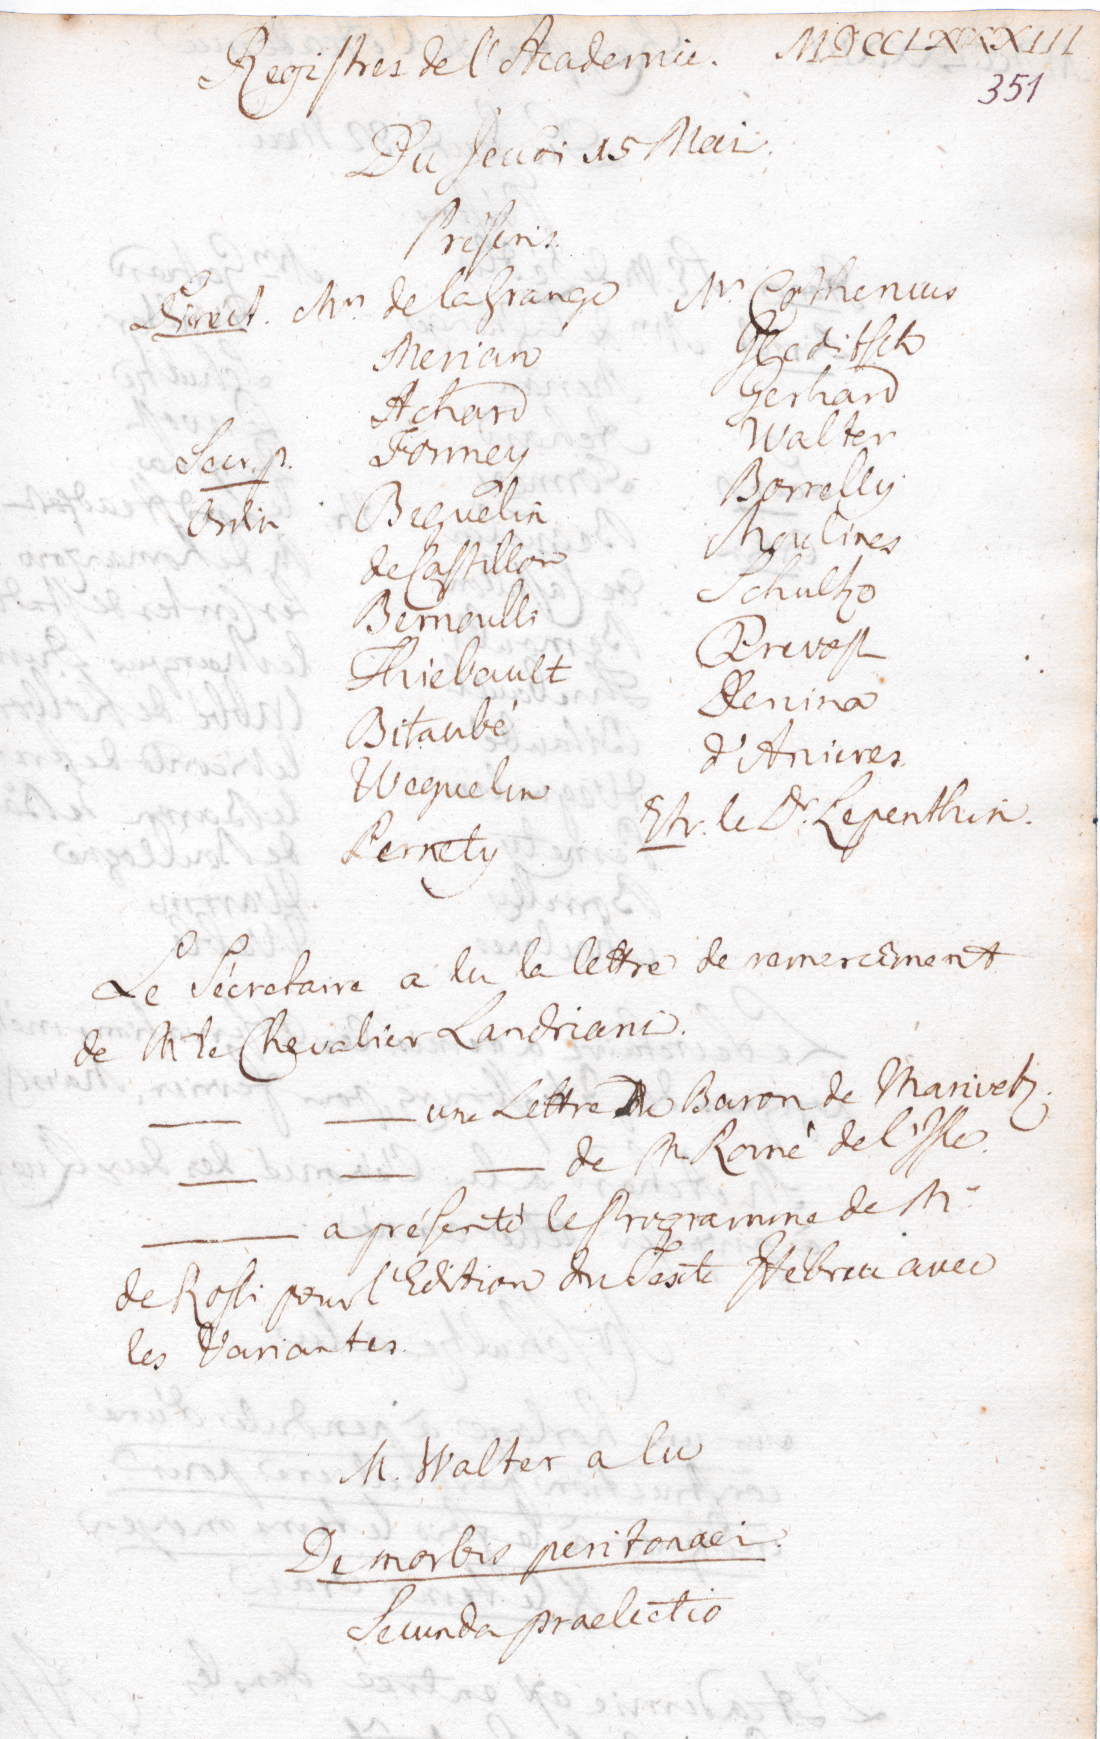 Registres de l'Academie. MDCCLXXXIII
351
Du Jeudi 15 Mai.
Présens.
Direct. Mrs. de la Grange
Merian
Achard
Secr. p. Formey
Ordin. Beguelin
de Castillon
Bernoulli
Thiebault
Bitaubé
Weguelin
Pernety
Mrs Cothenius
Gleditsch
Gerhard
Walter
Borrelly
Moulines
Schultze
Prevost
Denina
d'Anieres
Etr. le Dr. Lepenthin.
Le Sécretaire a lu la lettre de remerciment
de Mr le Chevalier Landriani.
— — une Lettre du Baron de Marivetz.
— — — de M. Romé de l'Isle.
— a présenté le Programme de Mr.
de Rossi pour l'Edition du Texte Hébreu avec
les Variantes.
M. Walter a lu
De morbis peritonaei.
Secunda praelectio